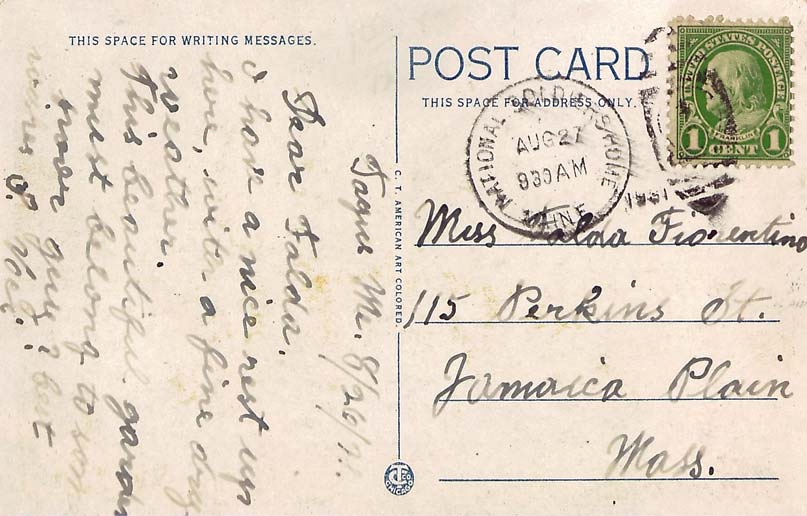 THIS SPACE FOR WRITING MESSAGES.
Togus Me. 8/26/31.
Dear Falda.
I have a nice rest up
here, with a fine dry
weather.
This beautiful garden
must belong to some
guy? best
C. T. AMERICAN ART COLORED.
POST CARD
THIS SPACE FOR ADDRESS ONLY.
NATIONAL SOLDIERS HOME
AUG 27
830 AM
MAINE
1931
UNITED STATES POSTAGE
FRANKLIN
1 CENT 1
Miss Falda Fiorentino
115 Perkins St.
Jamaica Plain
Mass.